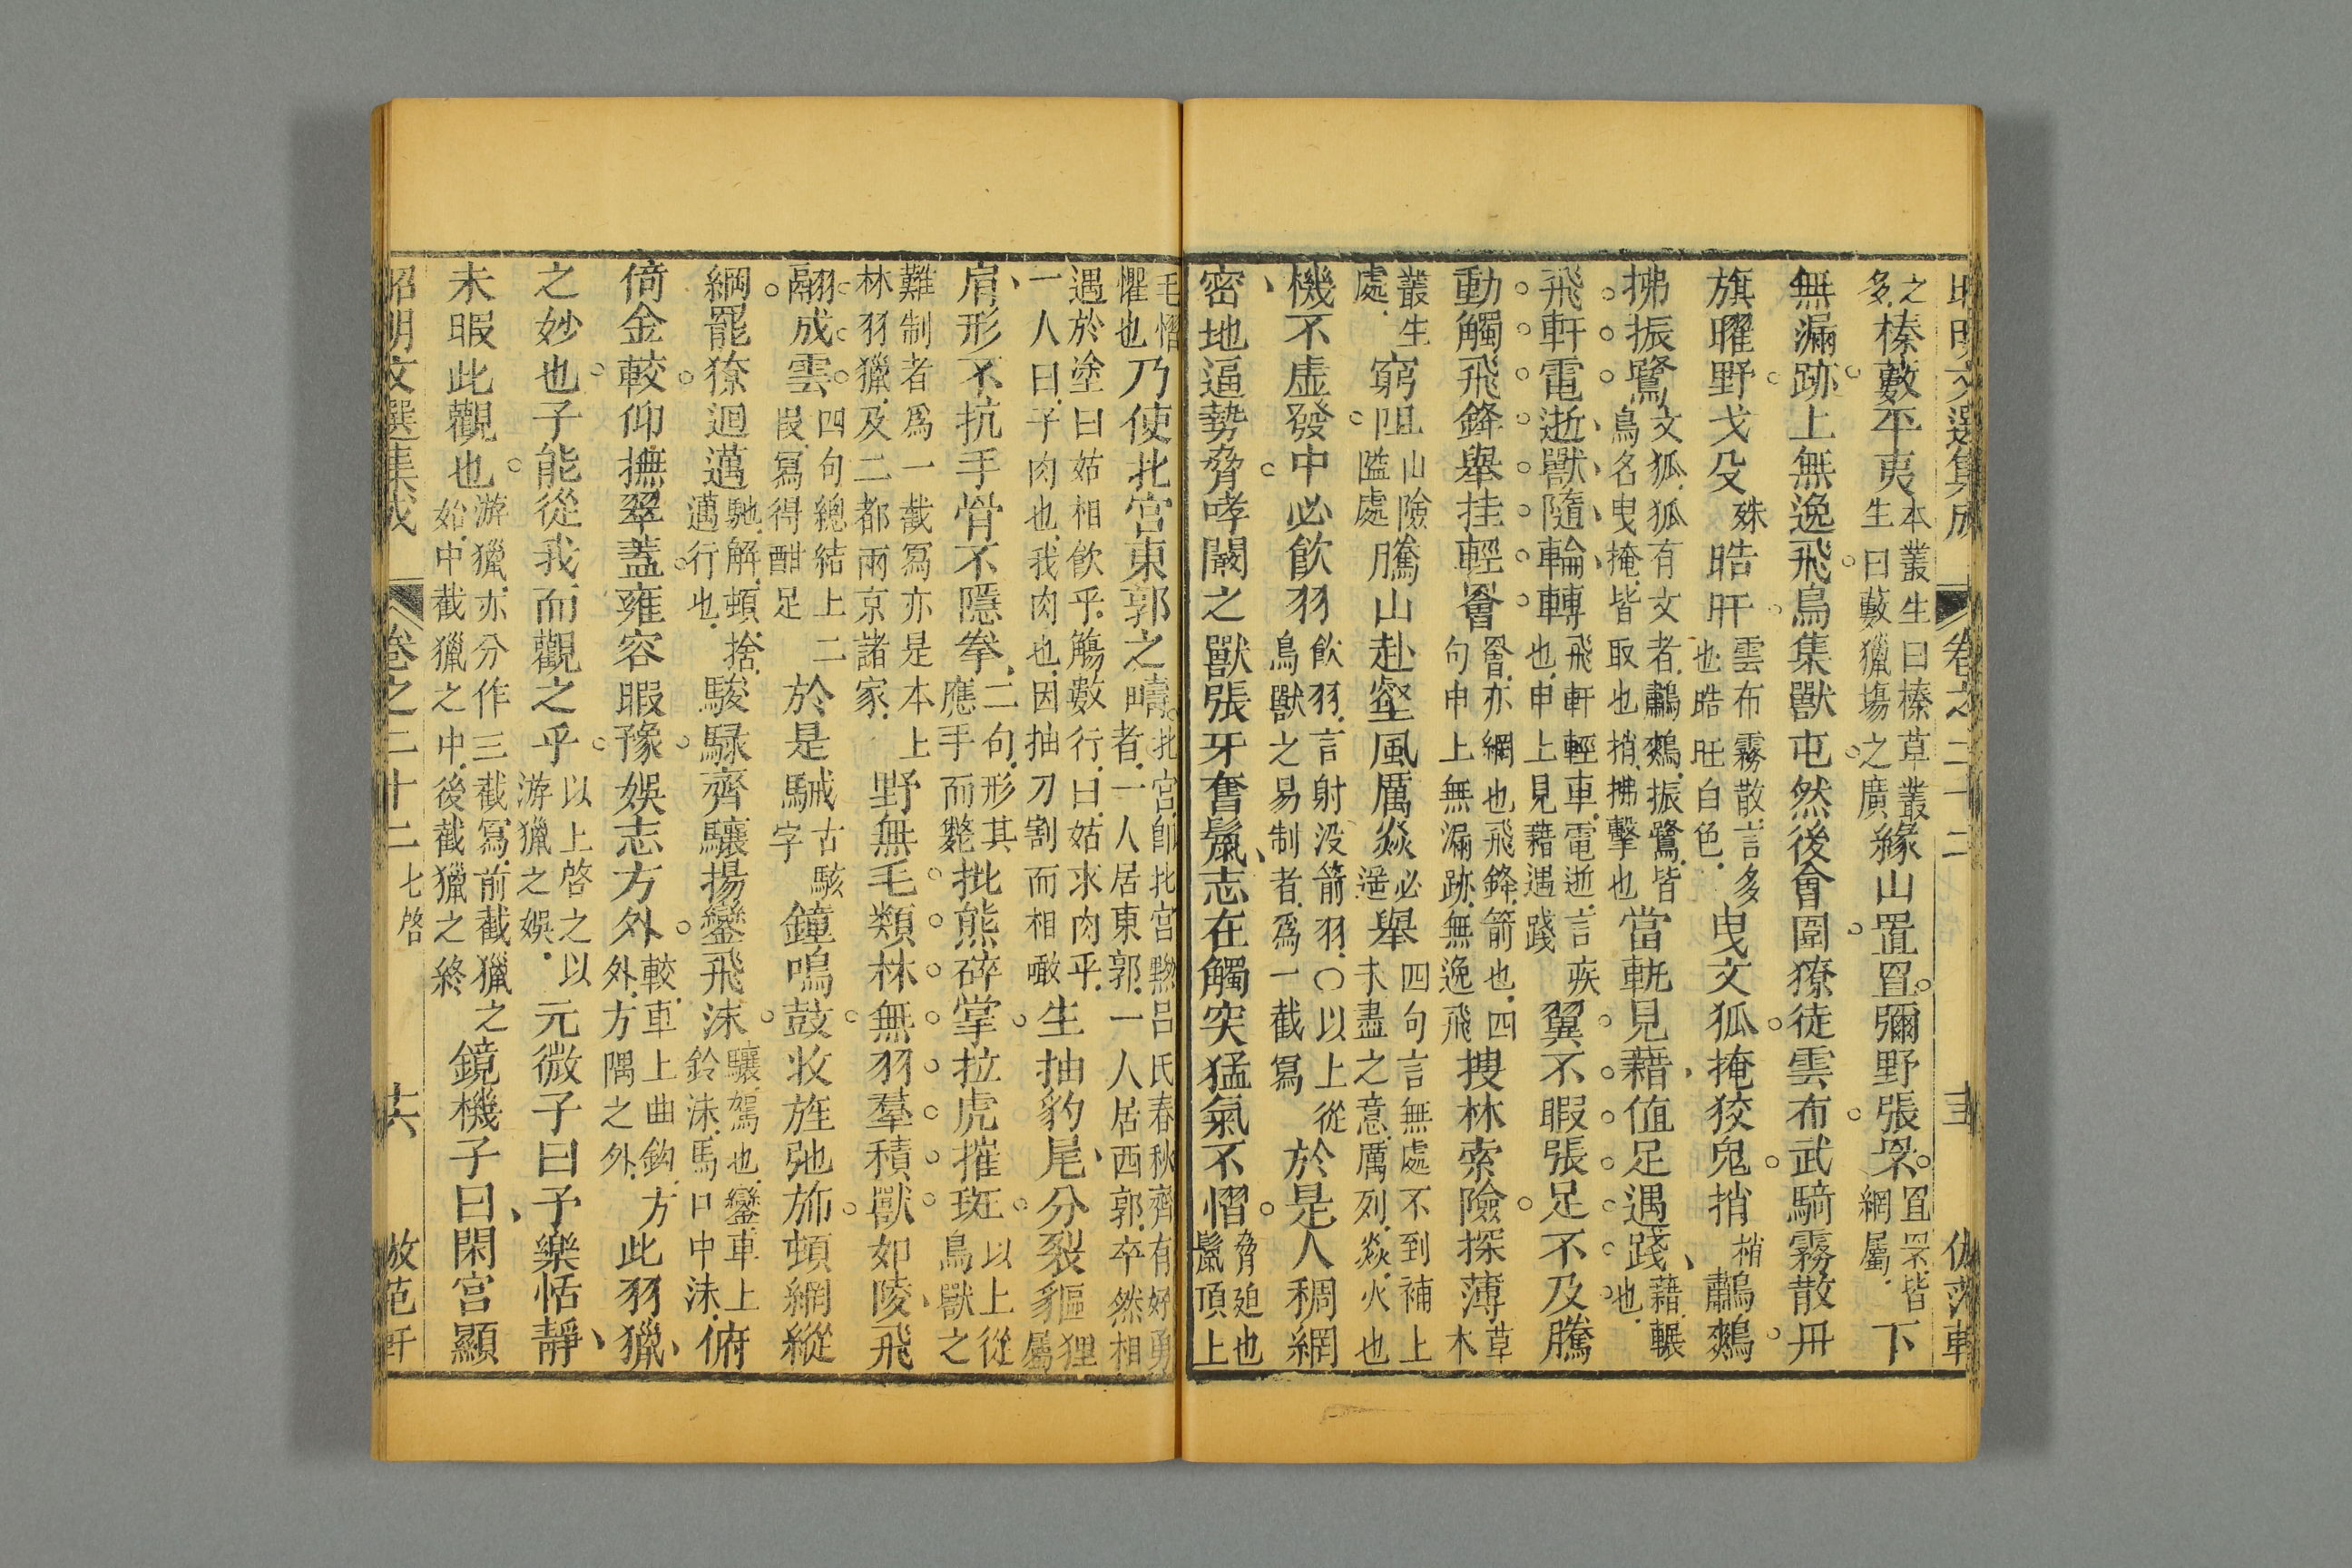 昭明文選集成 卷之二十二
之多榛藪平夷本叢生曰榛草叢生曰藪獵塲之廣緣山置罝彌野張罘罝罘皆網屬下
無漏跡上無逸飛鳥集獸屯然後會圍獠徒雲布武騎霧散丹
旗曜野戈殳殊晧旰雲布霧散言多也晧旺白色曳文狐掩狡兔捎梢鷫鷞
拂振鷺文狐狐有文者鷫鷞振鷺皆鳥名曳掩皆取也捎拂擊也當軏見藉值足遇踐藉輾也
飛軒電逝獸隨輪轉飛軒輕車電逝言疾也申上見藉遇踐翼不暇張足不及騰
動觸飛鋒舉挂輕罾罾亦網也飛鋒箭也四句申上無漏跡無逸飛搜林索險探薄草木
叢生處窮阻山險隘處騰山赴壑風厲焱必遥舉四句言無處不到補上未盡之意厲列焱火也
機不虛發中必飲羽飲羽言射没箭羽○以上從鳥獸之易制者爲一截寫於是人稠網
密地逼勢脅哮闞之獸張牙奮鬣志在觸突猛氣不慴脅廹也鬣頂上
毛慴懼也乃使北宮東郭之疇北宮卽北宮黝呂氏春秋齊有好勇者一人居東郭一人居西郭卒然相
遇於塗曰姑相飮乎觴數行曰姑求肉乎一人曰子肉也我肉也因抽刀割而相噉生抽豹尾分裂貙貙狸豻屬
肩形不抗手骨不隱拳二句形其應手而斃批熊碎掌拉虎摧斑以上從鳥獸之
難制者爲一截寫亦是本上林羽獵及二都兩京諸家野無毛類林無羽羣積獸如陵飛
翮成雲四句總結上二叚寫得酣足於是駴古駭字鐘鳴鼓收旌弛斾頓網縱
綱罷獠迴邁馳解頓捨邁行也駿騄齊驤揚鑾飛沫驤駕也鑾車上鈴沫馬口中沫俯
倚金較仰撫翠蓋雍容暇豫娛志方外較車上曲鈎方外方隅之外此羽獵
之妙也子能從我而觀之乎以上啓之以游獵之娛元微子曰予樂恬靜
未暇此觀也游獵亦分作三截寫前截獵之始中截獵之中後截獵之終鏡機子曰閑宮顯
昭明文選集成 卷之二十二 七啓 六 放范軒